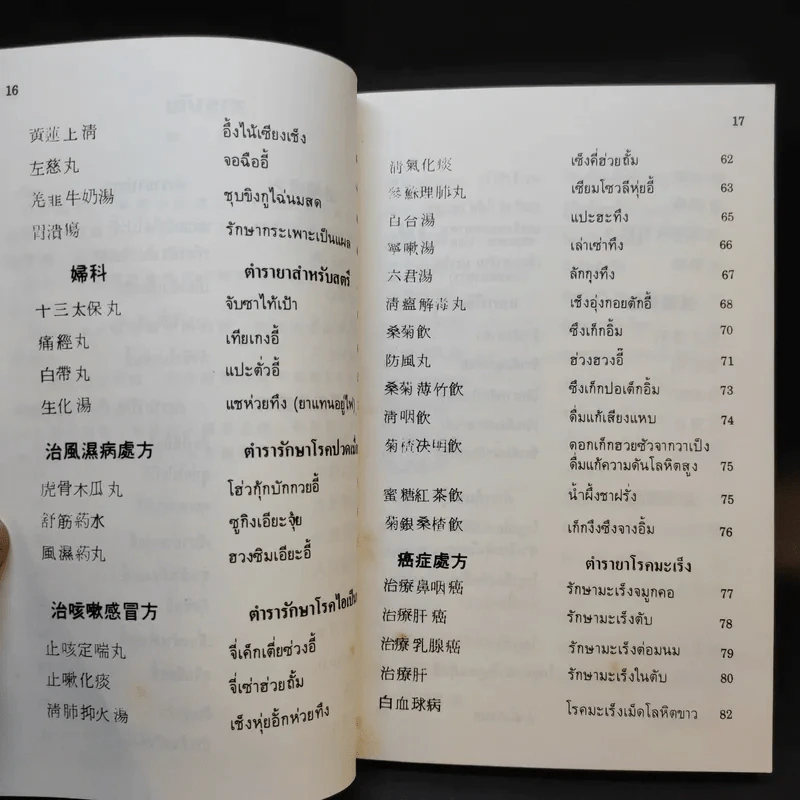 16
黄蓮上清 อึ้งไน้เซียงเซ็ง
左慈丸 จอฉืออี้
羌韮牛奶湯 ชุบขิงกูไฉ่นมสด
胃潰瘍 รักษากระเพาะเป็นแผล
婦科 ตำรายาสำหรับสตรี
十三太保丸 จับซาไท้เป้า
痛經丸 เทียเกงอี้
白帶丸 แปะตั่วอี้
生化湯 แชห่วยทึง (ยาแทนอยู่ไฟ)
治風濕病處方 ตำรารักษาโรคปวดเมื่
虎骨木瓜丸 โฮ่วกุ๊กบักกวยอี้
舒筋葯水 ซูกิงเอียะจุ้ย
風濕葯丸 ฮวงซิมเอียะอี้
治咳嗽感冒方 ตำรารักษาโรคไอเป็น
止咳定喘丸 จี่เค็กเตี่ยซ่วงอี้
止嗽化痰 จี่เซ่าฮ่วยถั้ม
清肺抑火湯 เซ็งหุ่ยอั้กห่วยทึง
17
清氣化痰 เซ็งคี่ฮ่วยถั้ม 62
參蘇理肺丸 เซียมโซวลีหุ่ยอี้ 63
百合湯 แปะฮะทึง 65
寧嗽湯 เล่าเซ่าทึง 66
六君湯 ลักกุงทึง 67
清瘟解毒丸 เช็งอุ่งกอยตักอี้ 68
桑菊飲 ซึงเก็กอิ้ม 70
防風丸 ฮ่วงฮวงอี๊ 71
桑菊薄竹飲 ซึงเก็กปอเต็กอิ้ม 73
清咽飲 ดื่มแก้เสียงแหบ 74
菊楂决明飲 ดอกเก็กฮวยซัวจากวาเป็ง
ดื่มแก้ความดันโลหิตสูง 75
蜜糖紅茶飲 น้ำผึ้งชาฝรั่ง 75
菊銀桑楂飲 เก็กงึงซึงจางอิ้ม 76
癌症處方 ตำรายาโรคมะเร็ง
治療鼻咽癌 รักษามะเร็งจมูกคอ 77
治療肝癌 รักษามะเร็งตับ 78
治療乳腺癌 รักษามะเร็งต่อมนม 79
治療肝 รักษามะเร็งในตับ 80
白血球病 โรคมะเร็งเม็ดโลหิตขาว 82